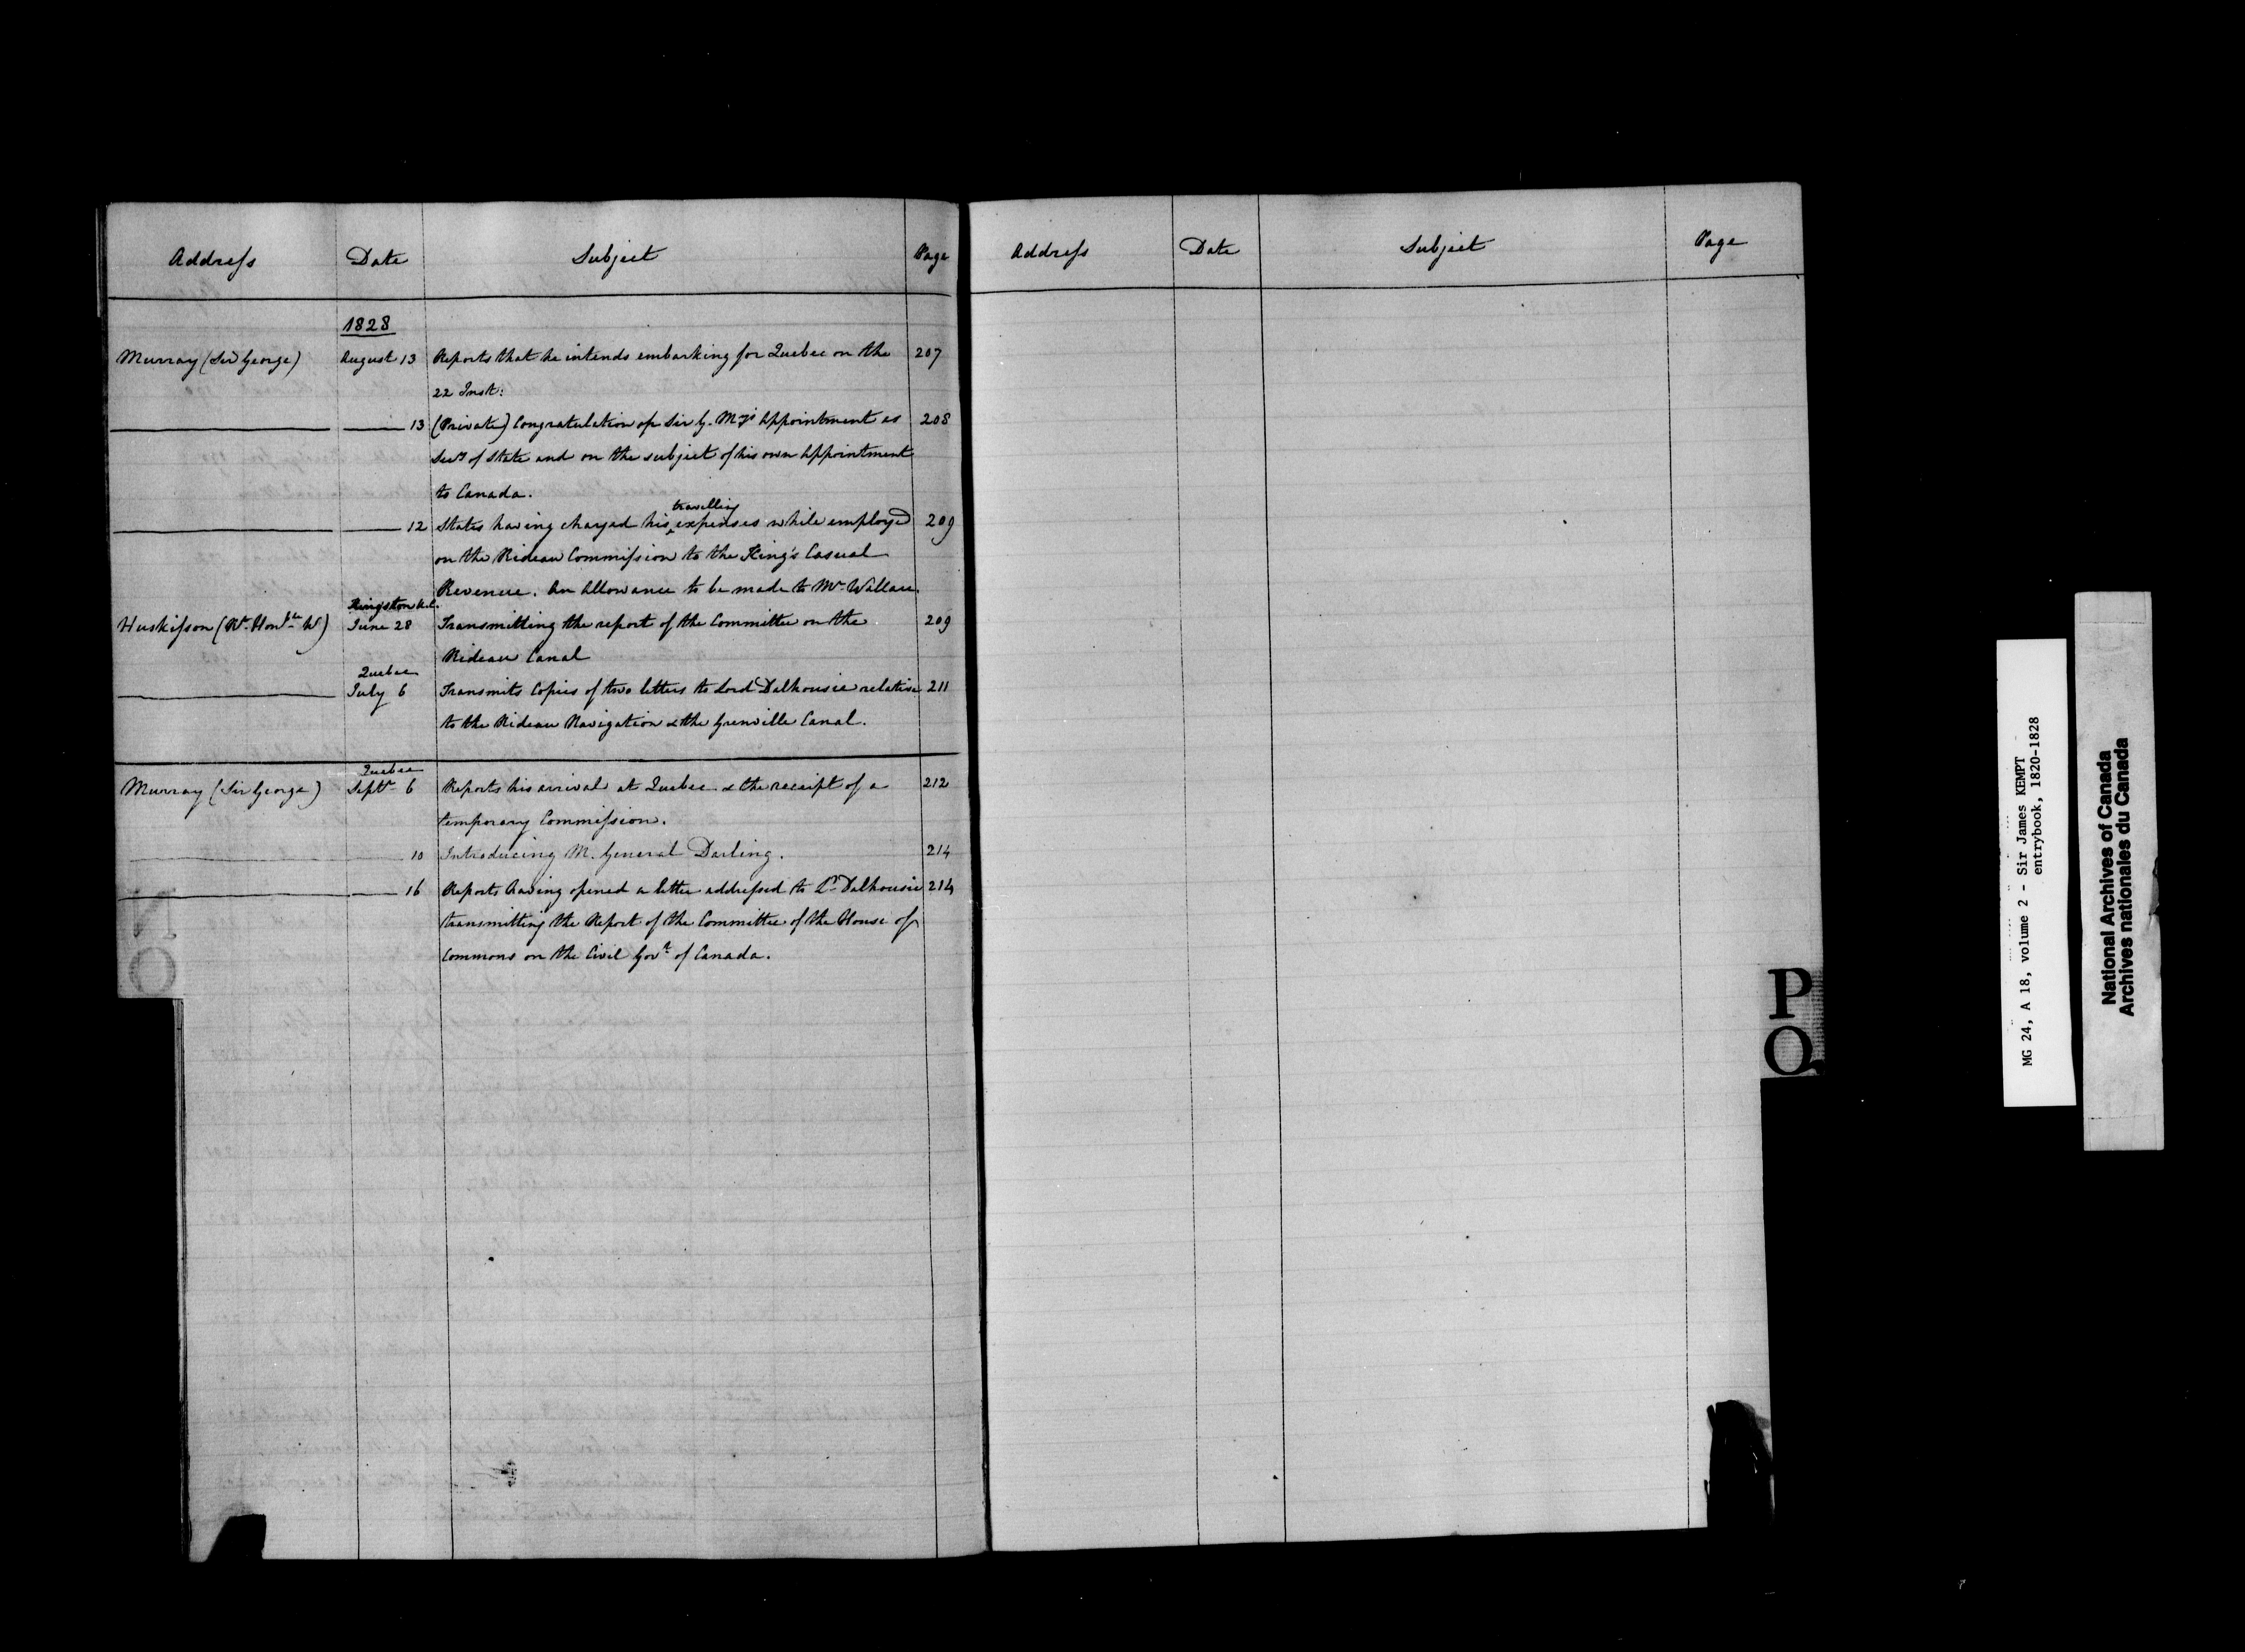 Address Date Subject Page
1828
Murray (Sir George) August 13 Reports that he intends embarking for Quebec on the 207
22 Inst:
13 (Private) Congratulation of Sir G. My's Appointment as 208
Secy of State and on the subject of his own Appointment
to Canada.
travelling
12 States having charged his expenses while employed 209
on the Rideau Commission to the King's Casual
Revenue. An Allowance to be made to Mr Wallace.
Kingston U.C.
Huskisson (Rt Honble W) June 28 Transmitting the report of the Committee on the 209
Rideau Canal
Quebec
July 6 Transmits Copies of two letters to Lord Dalhousie relative 211
to the Rideau Navigation & the Grenville Canal.
Quebec
Murray (Sir George) Septr 6 Reports his arrival at Quebec & the receipt of a 212
temporary Commission.
10 Introducing M. General Darling. 214
16 Reports having opened a letter addressed to Ld Dalhousie 214
transmitting the Report of the Committee of the House of
Commons on the Civil Govt of Canada.
N
O
Address Date Subject Page
P
Q
MG 24, A 18, volume 2 - Sir James KEMPT
entrybook, 1820-1828
National Archives of Canada
Archives nationales du Canada